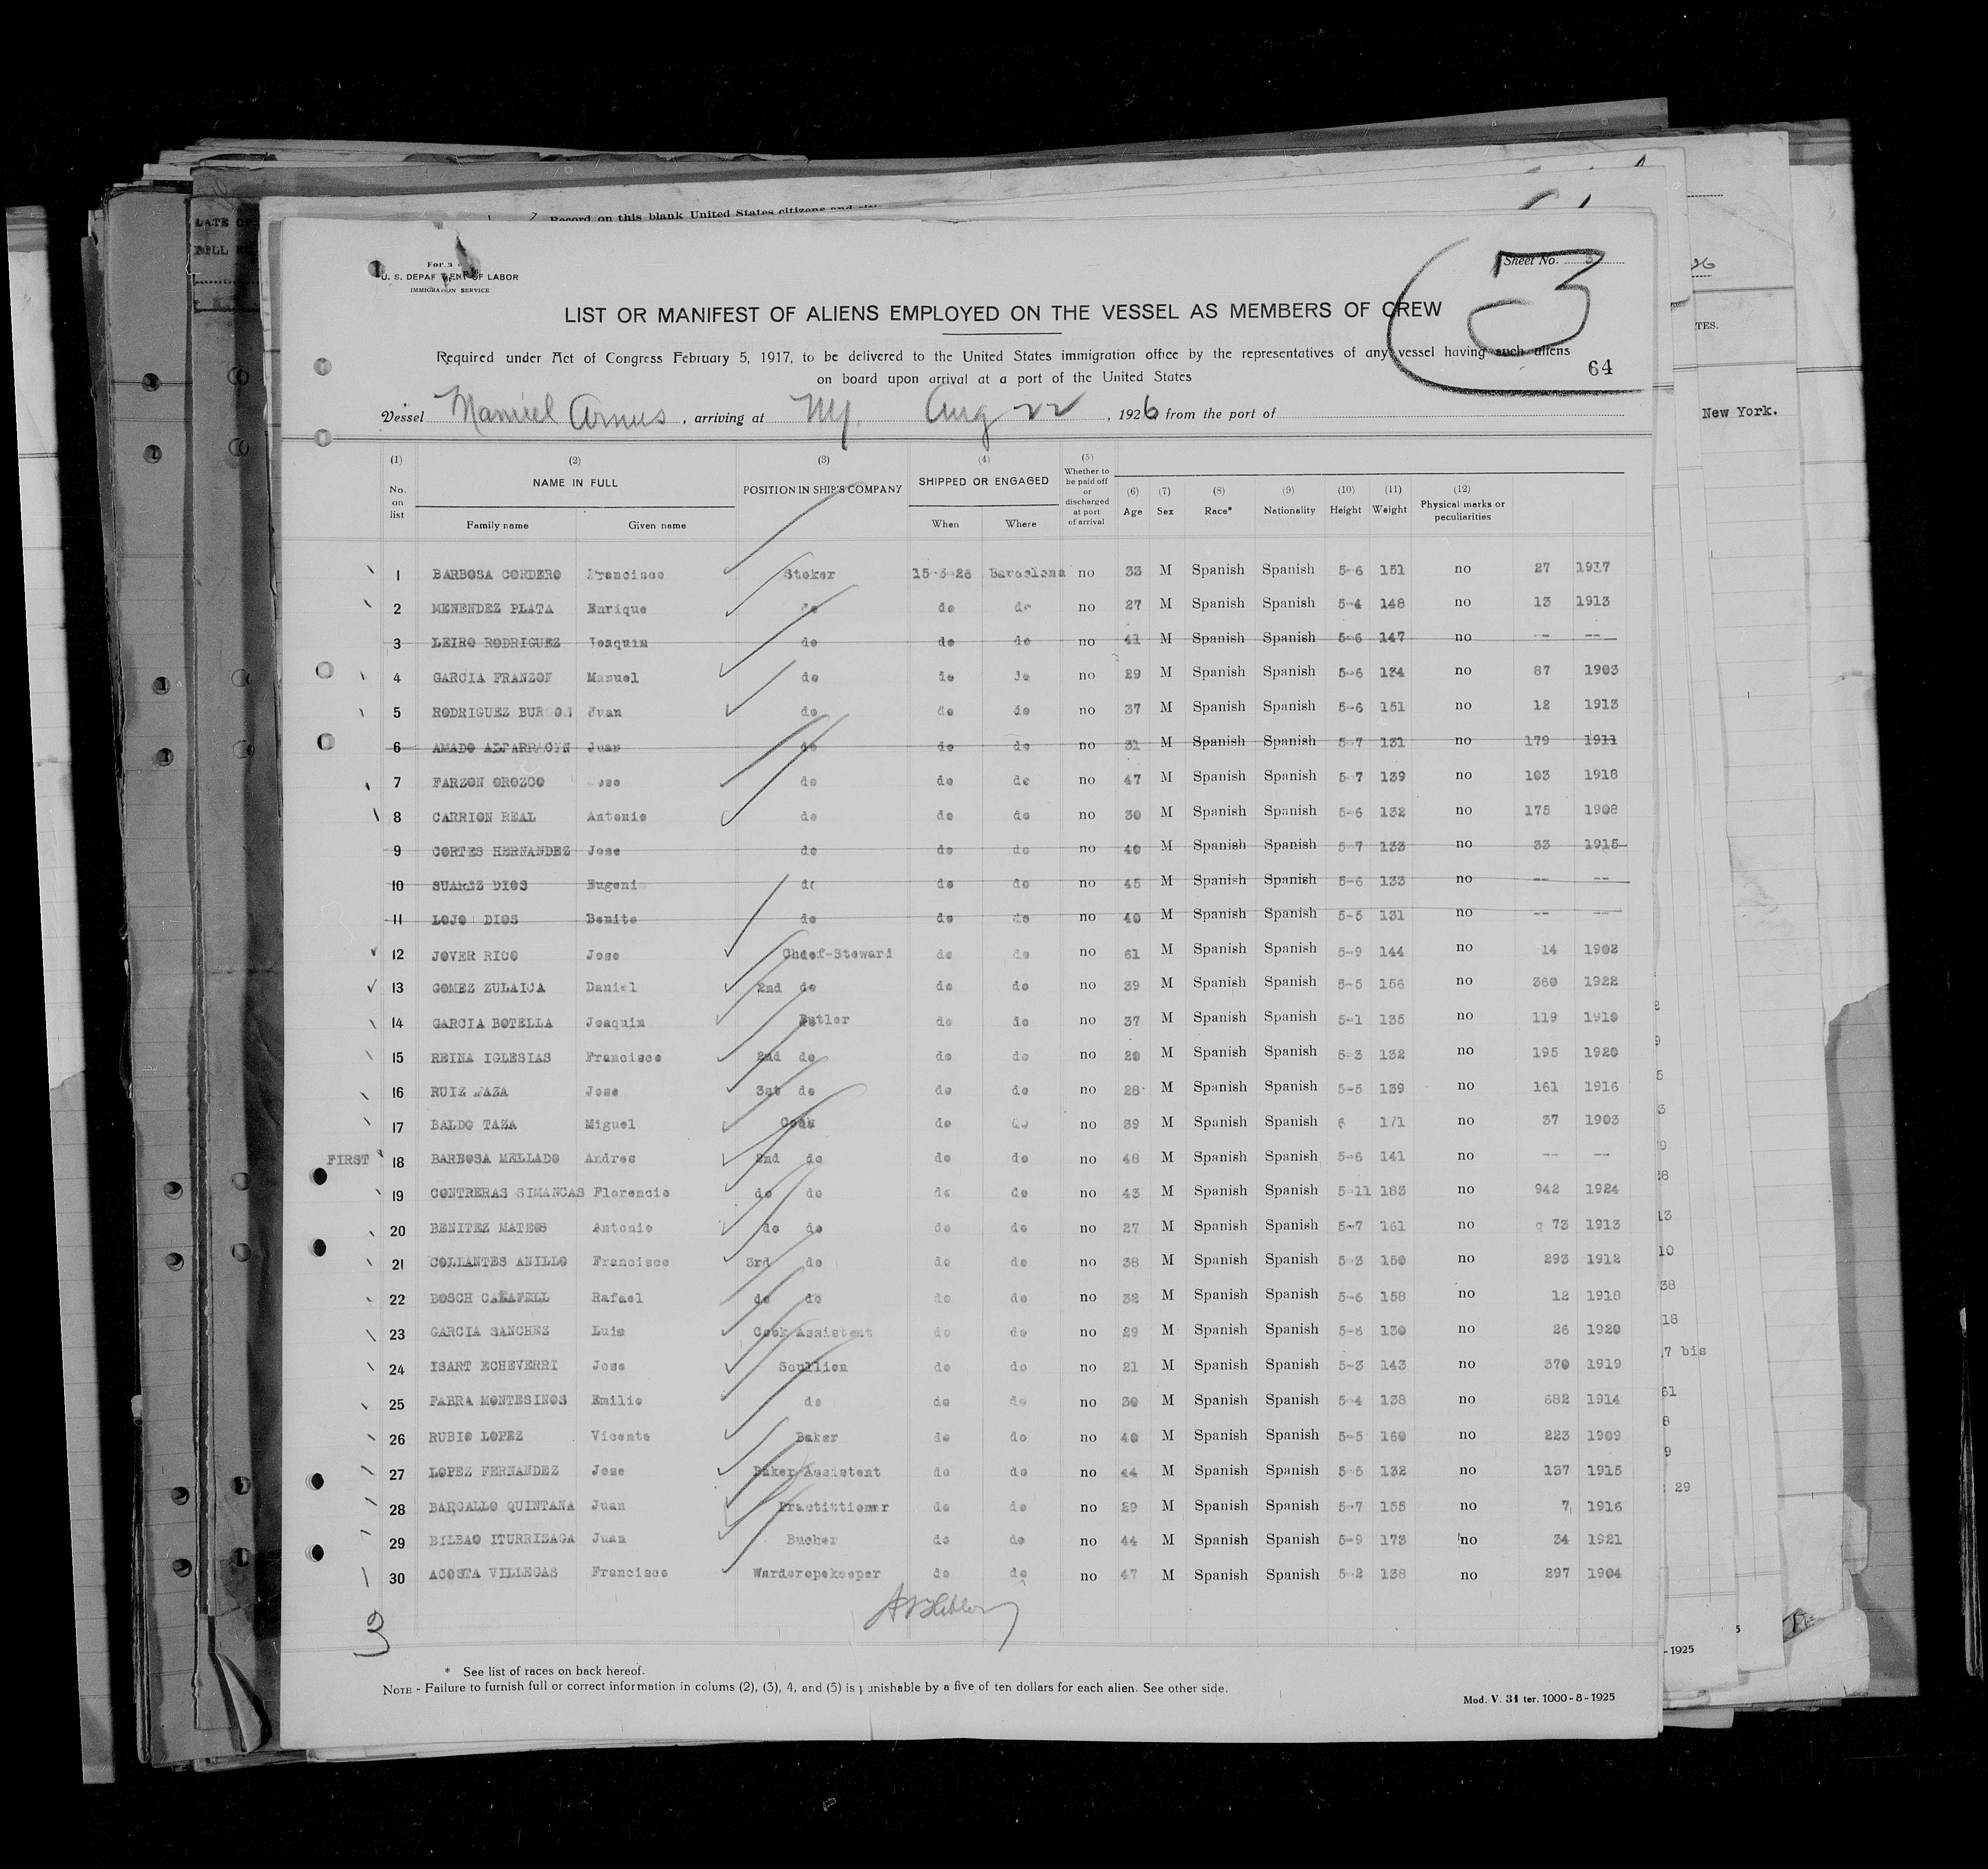 Record on this blank United States citizens and
U. S. DEPARTMENT OF LABOR
IMMIGRATION SERVICE
Sheet No.
3
LIST OR MANIFEST OF ALIENS EMPLOYED ON THE VESSEL AS MEMBERS OF CREW
Required under Act of Congress February 5, 1917, to be delivered to the United States immigration office by the representatives of any vessel having such aliens
on board upon arrival at a port of the United States
64
Vessel Manuel Arnus, arriving at NY. Aug 22, 1926 from the port of
New York.
(1) No. on list (2) NAME IN FULL Family name Given name (3) POSITION IN SHIP'S COMPANY (4) SHIPPED OR ENGAGED When Where (5) Whether to be paid off or discharged at port of arrival (6) Age (7) Sex (8) Race* (9) Nationality (10) Height (11) Weight (12) Physical marks or peculiarities
1 BARBOSA CORDERO Francisco Stoker 15-3-26 Barcelona no 33 M Spanish Spanish 5-6 151 no 27 1917
2 MENENDEZ PLATA Enrique do do do no 27 M Spanish Spanish 5-4 148 no 13 1913
3 LEIRO RODRIGUEZ Joaquin do do do no 41 M Spanish Spanish 5-6 147 no -- --
4 GARCIA FRANZON Manuel do do do no 29 M Spanish Spanish 5-6 134 no 87 1903
5 RODRIGUEZ Juan do do do no 37 M Spanish Spanish 5-6 151 no 12 1913
6 AMADO Juan do do do no 31 M Spanish Spanish 5-7 131 no 179 1911
7 FARZON OROZCO Jose do do do no 47 M Spanish Spanish 5-7 139 no 103 1918
8 CARRION REAL Antonio do do do no 30 M Spanish Spanish 5-6 132 no 175 1908
9 CORTES HERNANDEZ Jose do do do no 40 M Spanish Spanish 5-7 133 no 33 1915
10 SUAREZ DIOS Eugeni do do do no 45 M Spanish Spanish 5-6 133 no -- --
11 LOJO DIOS Benito do do do no 40 M Spanish Spanish 5-5 131 no -- --
12 JOVER RICO Jose Cheef-Steward do do no 61 M Spanish Spanish 5-9 144 no 14 1902
13 GOMEZ ZULAICA Daniel 2nd do do do no 39 M Spanish Spanish 5-5 156 no 360 1922
14 GARCIA BOTELLA Joaquin Butler do do no 37 M Spanish Spanish 5-1 135 no 119 1910
15 REINA IGLESIAS Francisco 2nd do do do no 20 M Spanish Spanish 5-3 132 no 195 1920
16 RUIZ Jose 3st do do do no 28 M Spanish Spanish 5-5 139 no 161 1916
17 BALDO TAZA Miguel Cook do do no 39 M Spanish Spanish 6 171 no 37 1903
FIRST 18 BARBOSA MELLADO Andres 2nd do do do no 48 M Spanish Spanish 5-6 141 no -- --
19 CONTRERAS SIMANCAS Florencio do do do do no 43 M Spanish Spanish 5-11 183 no 942 1924
20 BENITEZ MATEOS Antonio do do do do no 27 M Spanish Spanish 5-7 161 no q 73 1913
21 COLLANTES ANILLO Francisco 3rd do do do no 38 M Spanish Spanish 5-3 150 no 293 1912
22 BOSCH CAÑAFELL Rafael do do do do no 32 M Spanish Spanish 5-6 158 no 12 1918
23 GARCIA SANCHEZ Luis Cook Assistent do do no 29 M Spanish Spanish 5-6 130 no 26 1920
24 ISART ECHEVERRI Jose Scullien do do no 21 M Spanish Spanish 5-3 143 no 370 1919
25 FABRA MONTESINOS Emilio do do do no 30 M Spanish Spanish 5-4 138 no 682 1914
26 RUBIO LOPEZ Vicente Baker do do no 40 M Spanish Spanish 5-5 160 no 223 1909
27 LOPEZ FERNANDEZ Jose Baker Assistent do do no 44 M Spanish Spanish 5-5 132 no 137 1915
28 BARGALLO QUINTANA Juan Practittioner do do no 29 M Spanish Spanish 5-7 155 no 7 1916
29 BILBAO ITURRIZAGA Juan Bucher do do no 44 M Spanish Spanish 5-9 173 no 34 1921
30 ACOSTA VILLEGAS Francisco Warderopekeeper do do no 47 M Spanish Spanish 5-2 138 no 297 1904
3
* See list of races on back hereof.
NOTE - Failure to furnish full or correct information in colums (2), (3), 4, and (5) is punishable by a five of ten dollars for each alien. See other side.
Mod. V. 31 ter. 1000-8-1925